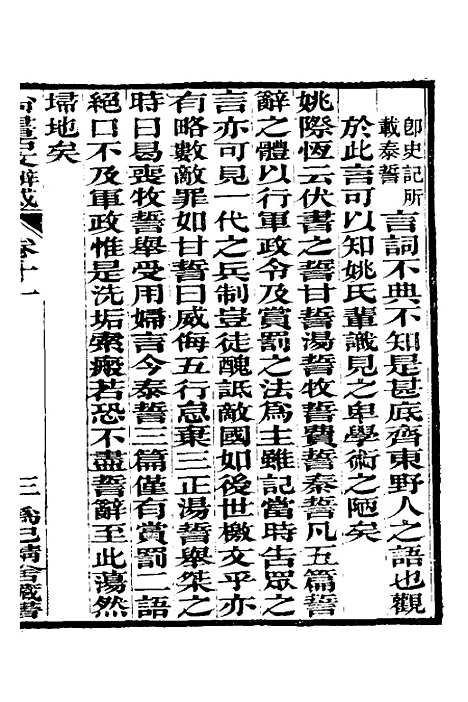 卽史記所
載泰誓
言詞不典不知是甚底齊東野人之語也觀
於此言可以知姚氏輩識見之卑學術之陋矣
姚際恆云伏書之誓甘誓湯誓牧誓費誓秦誓凡五篇誓
辭之體以行軍政令及賞罰之法爲主雖記當時告眾之
言亦可見一代之兵制豈徒醜詆敵國如後世檄文乎亦
有略數敵罪如甘誓曰威侮五行怠棄三正湯誓舉桀之
時日曷喪牧誓舉受用婦言今泰誓三篇僅有賞罰二語
絕口不及軍政惟是洗垢索瘢若恐不盡誓辭至此蕩然
埽地矣
尚書古文辨惑
卷十一
三
爲己精舍藏書